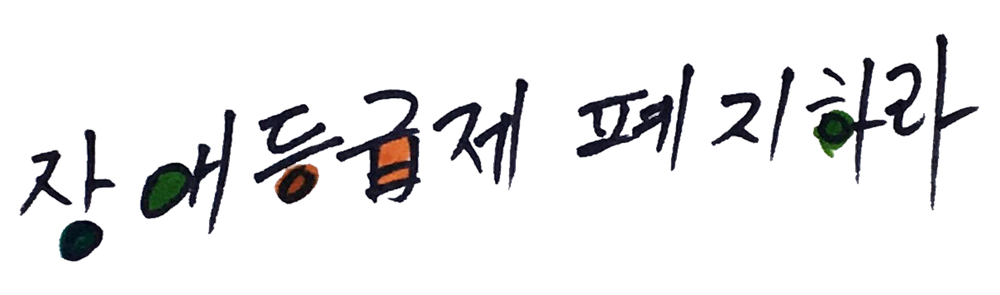 장애등급제 폐지하라